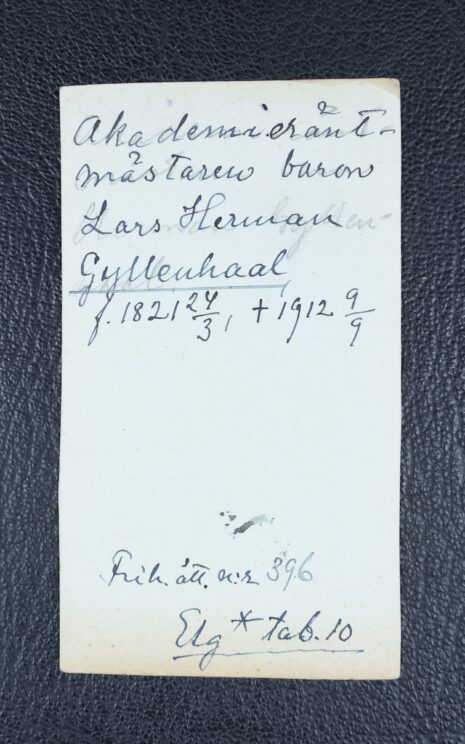 Akademieränt-
mästaren baron
Lars Herman
Gyllenhaal,
f. 1821 24/3, + 1912 9/9
Frih. ätt. n:r 396
Elg * tab. 10